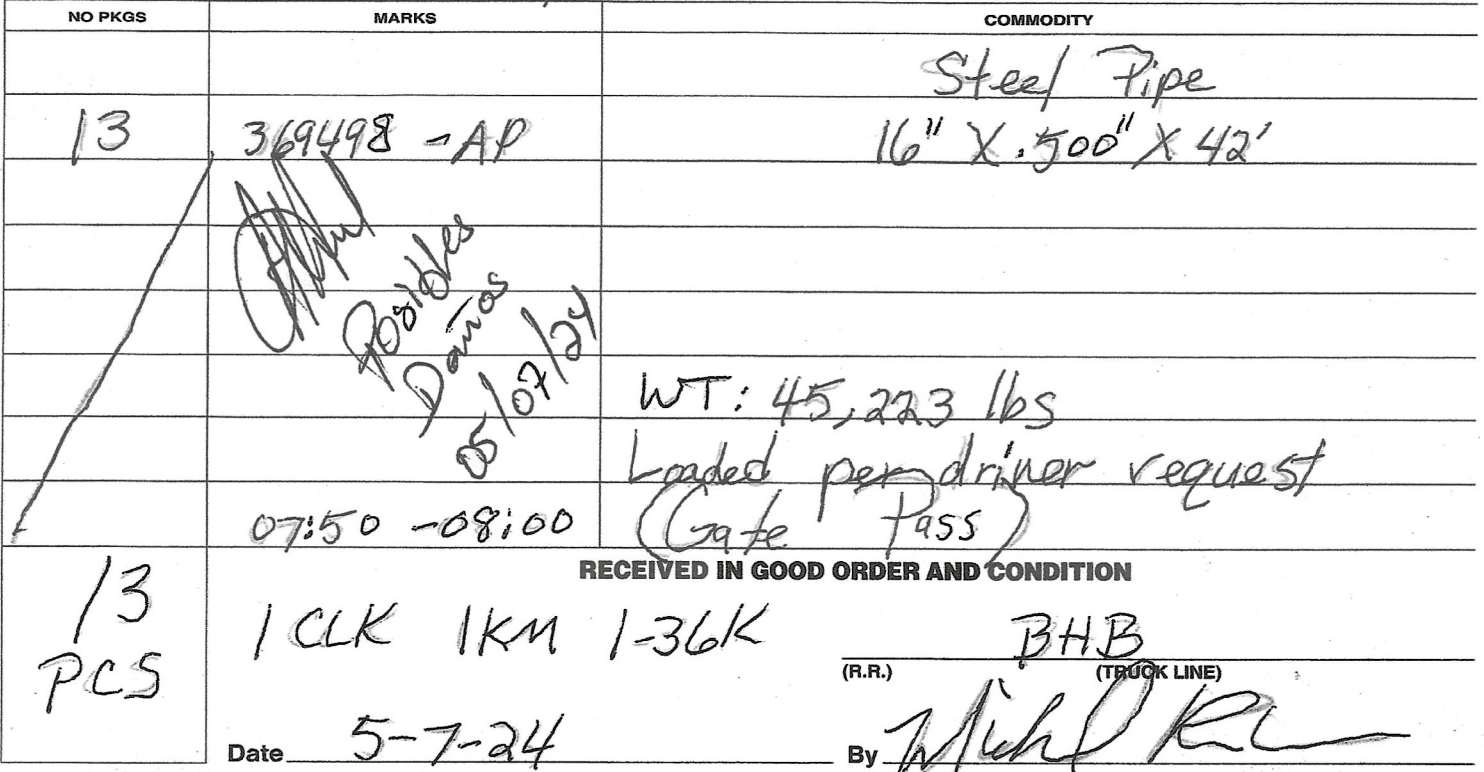 NO PKGS MARKS COMMODITY
Steel Pipe
13 369498 -AP 16" X .500" X 42'
Posibles
Daños
05/07/24
WT: 45,223 lbs
Loaded per driver request
07:50 -08:00 (Gate Pass)
RECEIVED IN GOOD ORDER AND CONDITION
13 PCS
1 CLK 1KM 1-36K
BHB
(R.R.) (TRUCK LINE)
Date 5-7-24 By